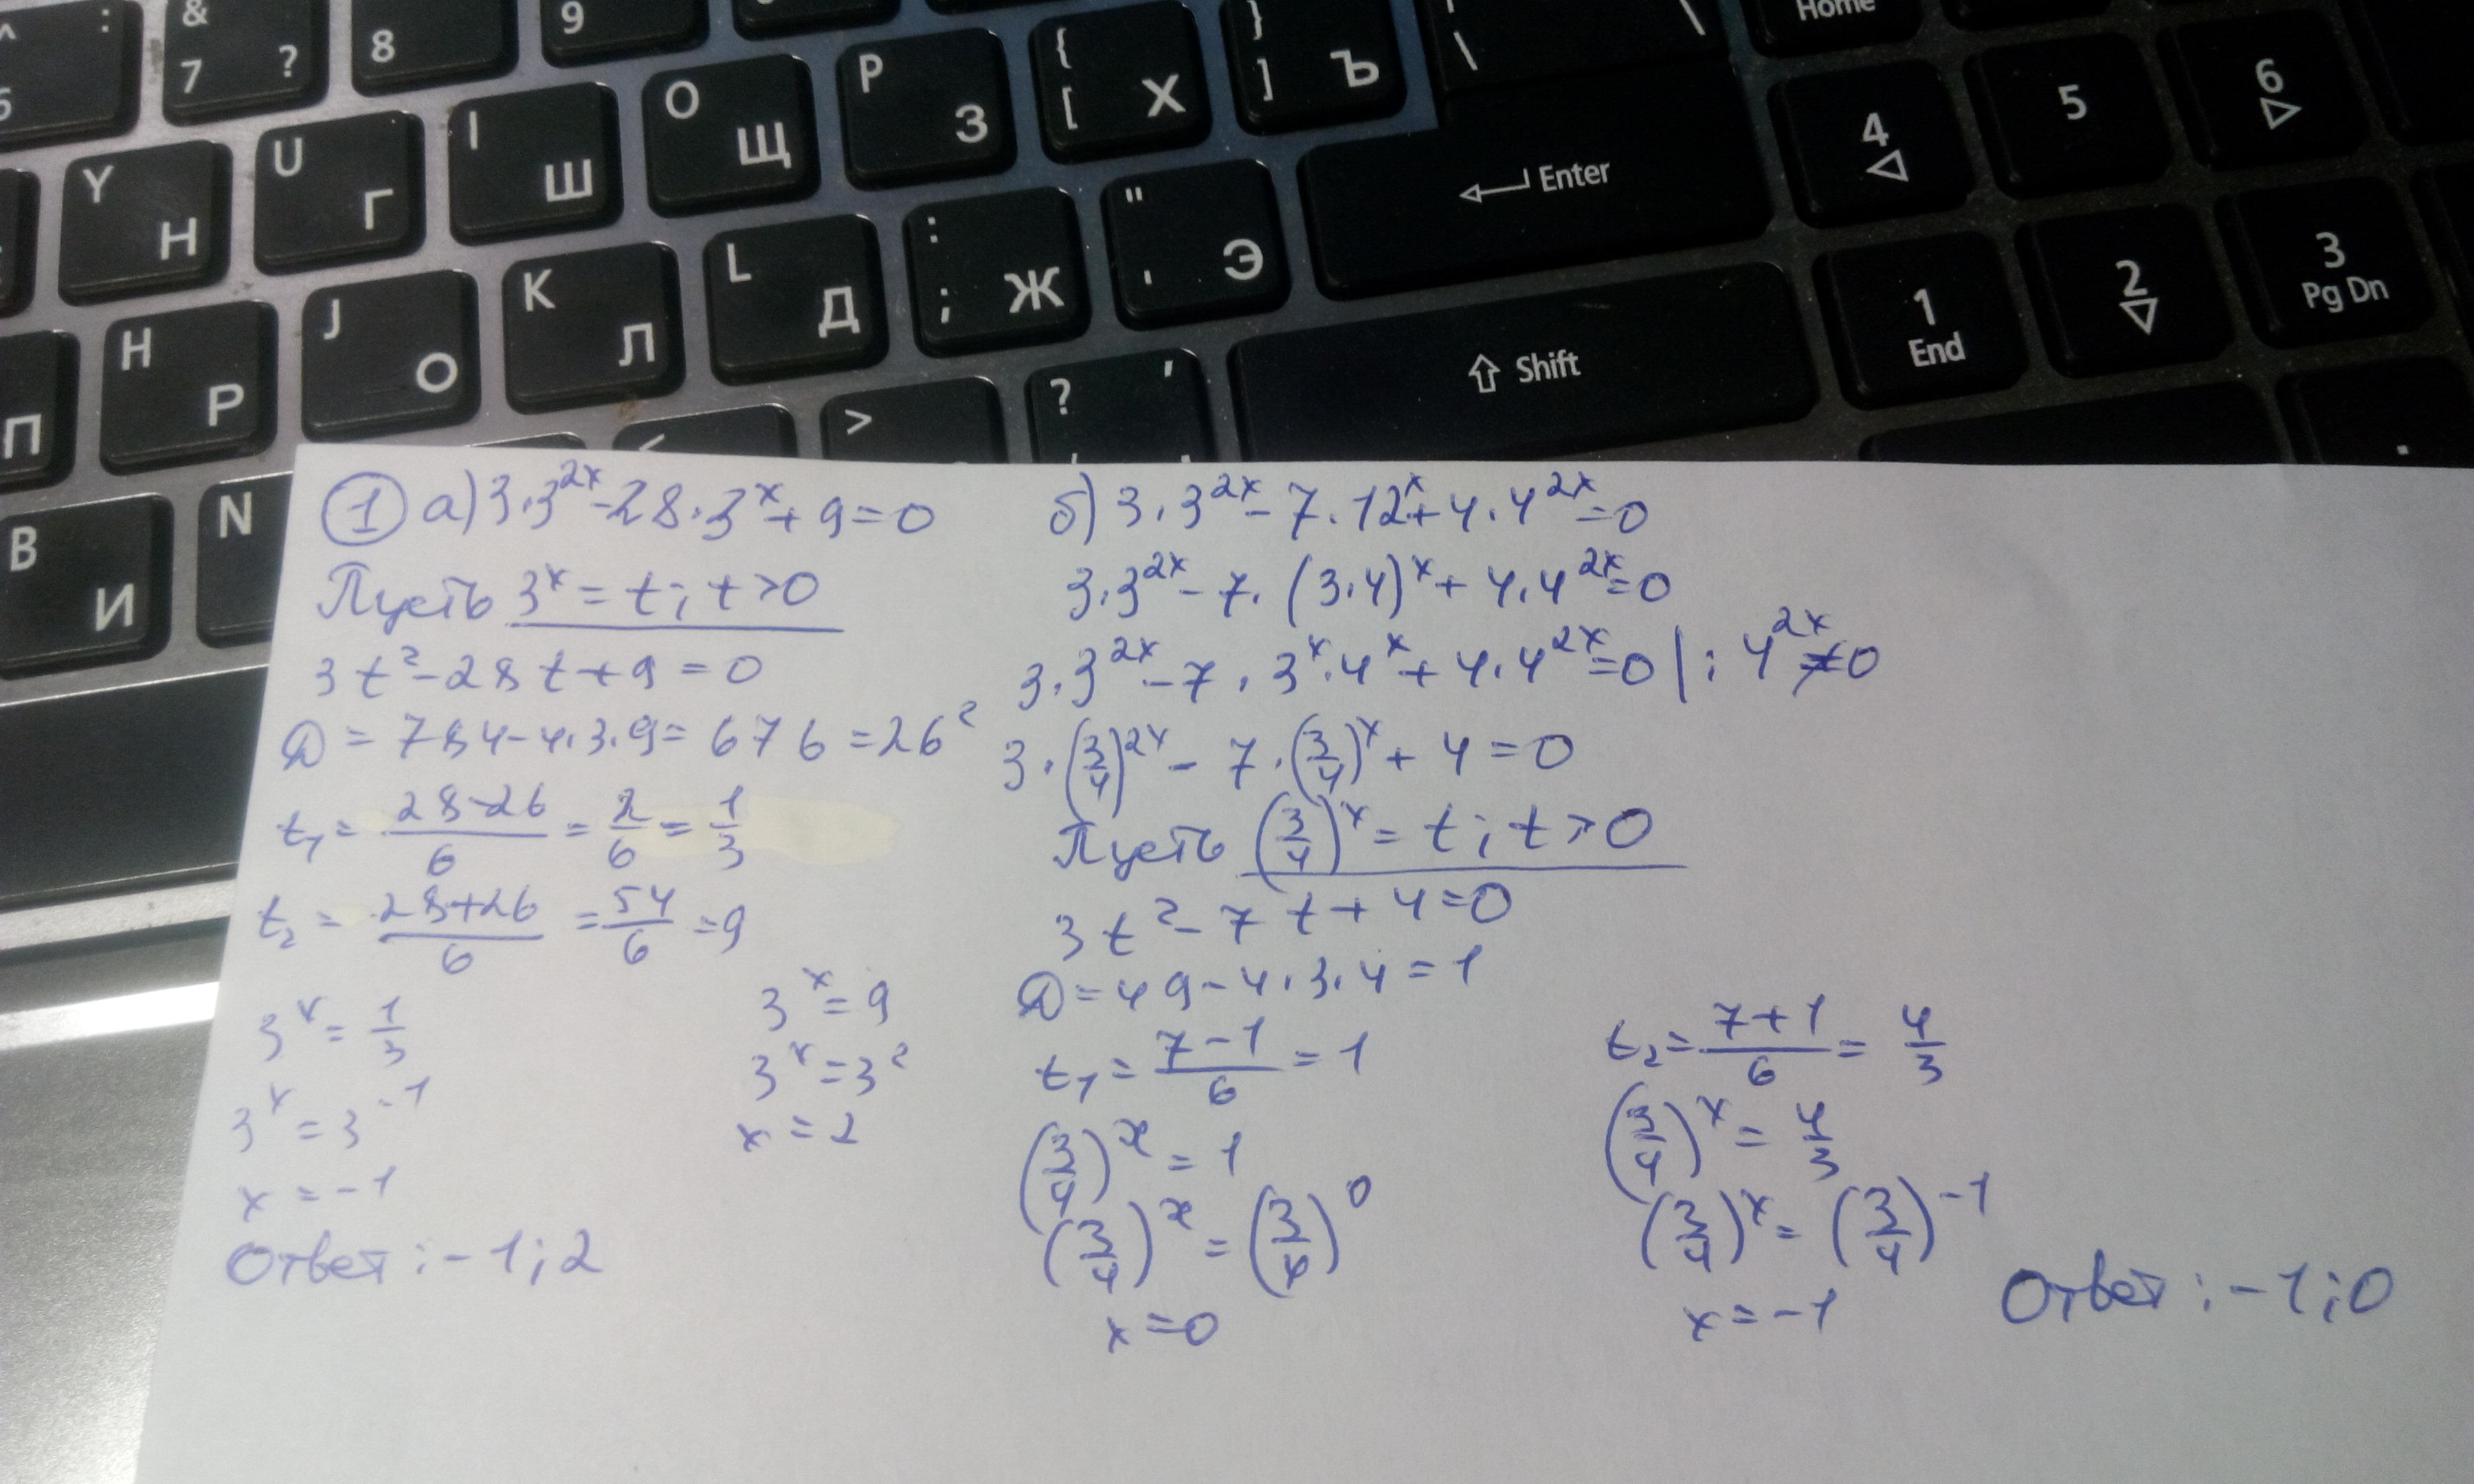 ^ : & 9
6 7 ? 8 Home
Y Н U Г I Ш O Щ P З { [ Х } ] Ъ \ \ 4 5 6
П H Р J О K Л L Д : ; Ж " ' Э Enter 1 End 2 3 Pg Dn
В И N < > ? , Shift
① а) 3·3^2x - 28·3^x + 9 = 0
Пусть 3^x = t; t > 0
3t² - 28t + 9 = 0
D = 784 - 4·3·9 = 676 = 26²
t₁ = (28-26)/6 = 2/6 = 1/3
t₂ = (28+26)/6 = 54/6 = 9
3^x = 1/3
3^x = 3^-1
x = -1
3^x = 9
3^x = 3²
x = 2
Ответ: -1; 2
б) 3·3^2x - 7·12^x + 4·4^2x = 0
3·3^2x - 7·(3·4)^x + 4·4^2x = 0
3·3^2x - 7·3^x·4^x + 4·4^2x = 0 |: 4^2x ≠ 0
3·(3/4)^2x - 7·(3/4)^x + 4 = 0
Пусть (3/4)^x = t; t > 0
3t² - 7t + 4 = 0
D = 49 - 4·3·4 = 1
t₁ = (7-1)/6 = 1
(3/4)^x = 1
(3/4)^x = (3/4)^0
x = 0
t₂ = (7+1)/6 = 4/3
(3/4)^x = 4/3
(3/4)^x = (3/4)^-1
x = -1
Ответ: -1; 0